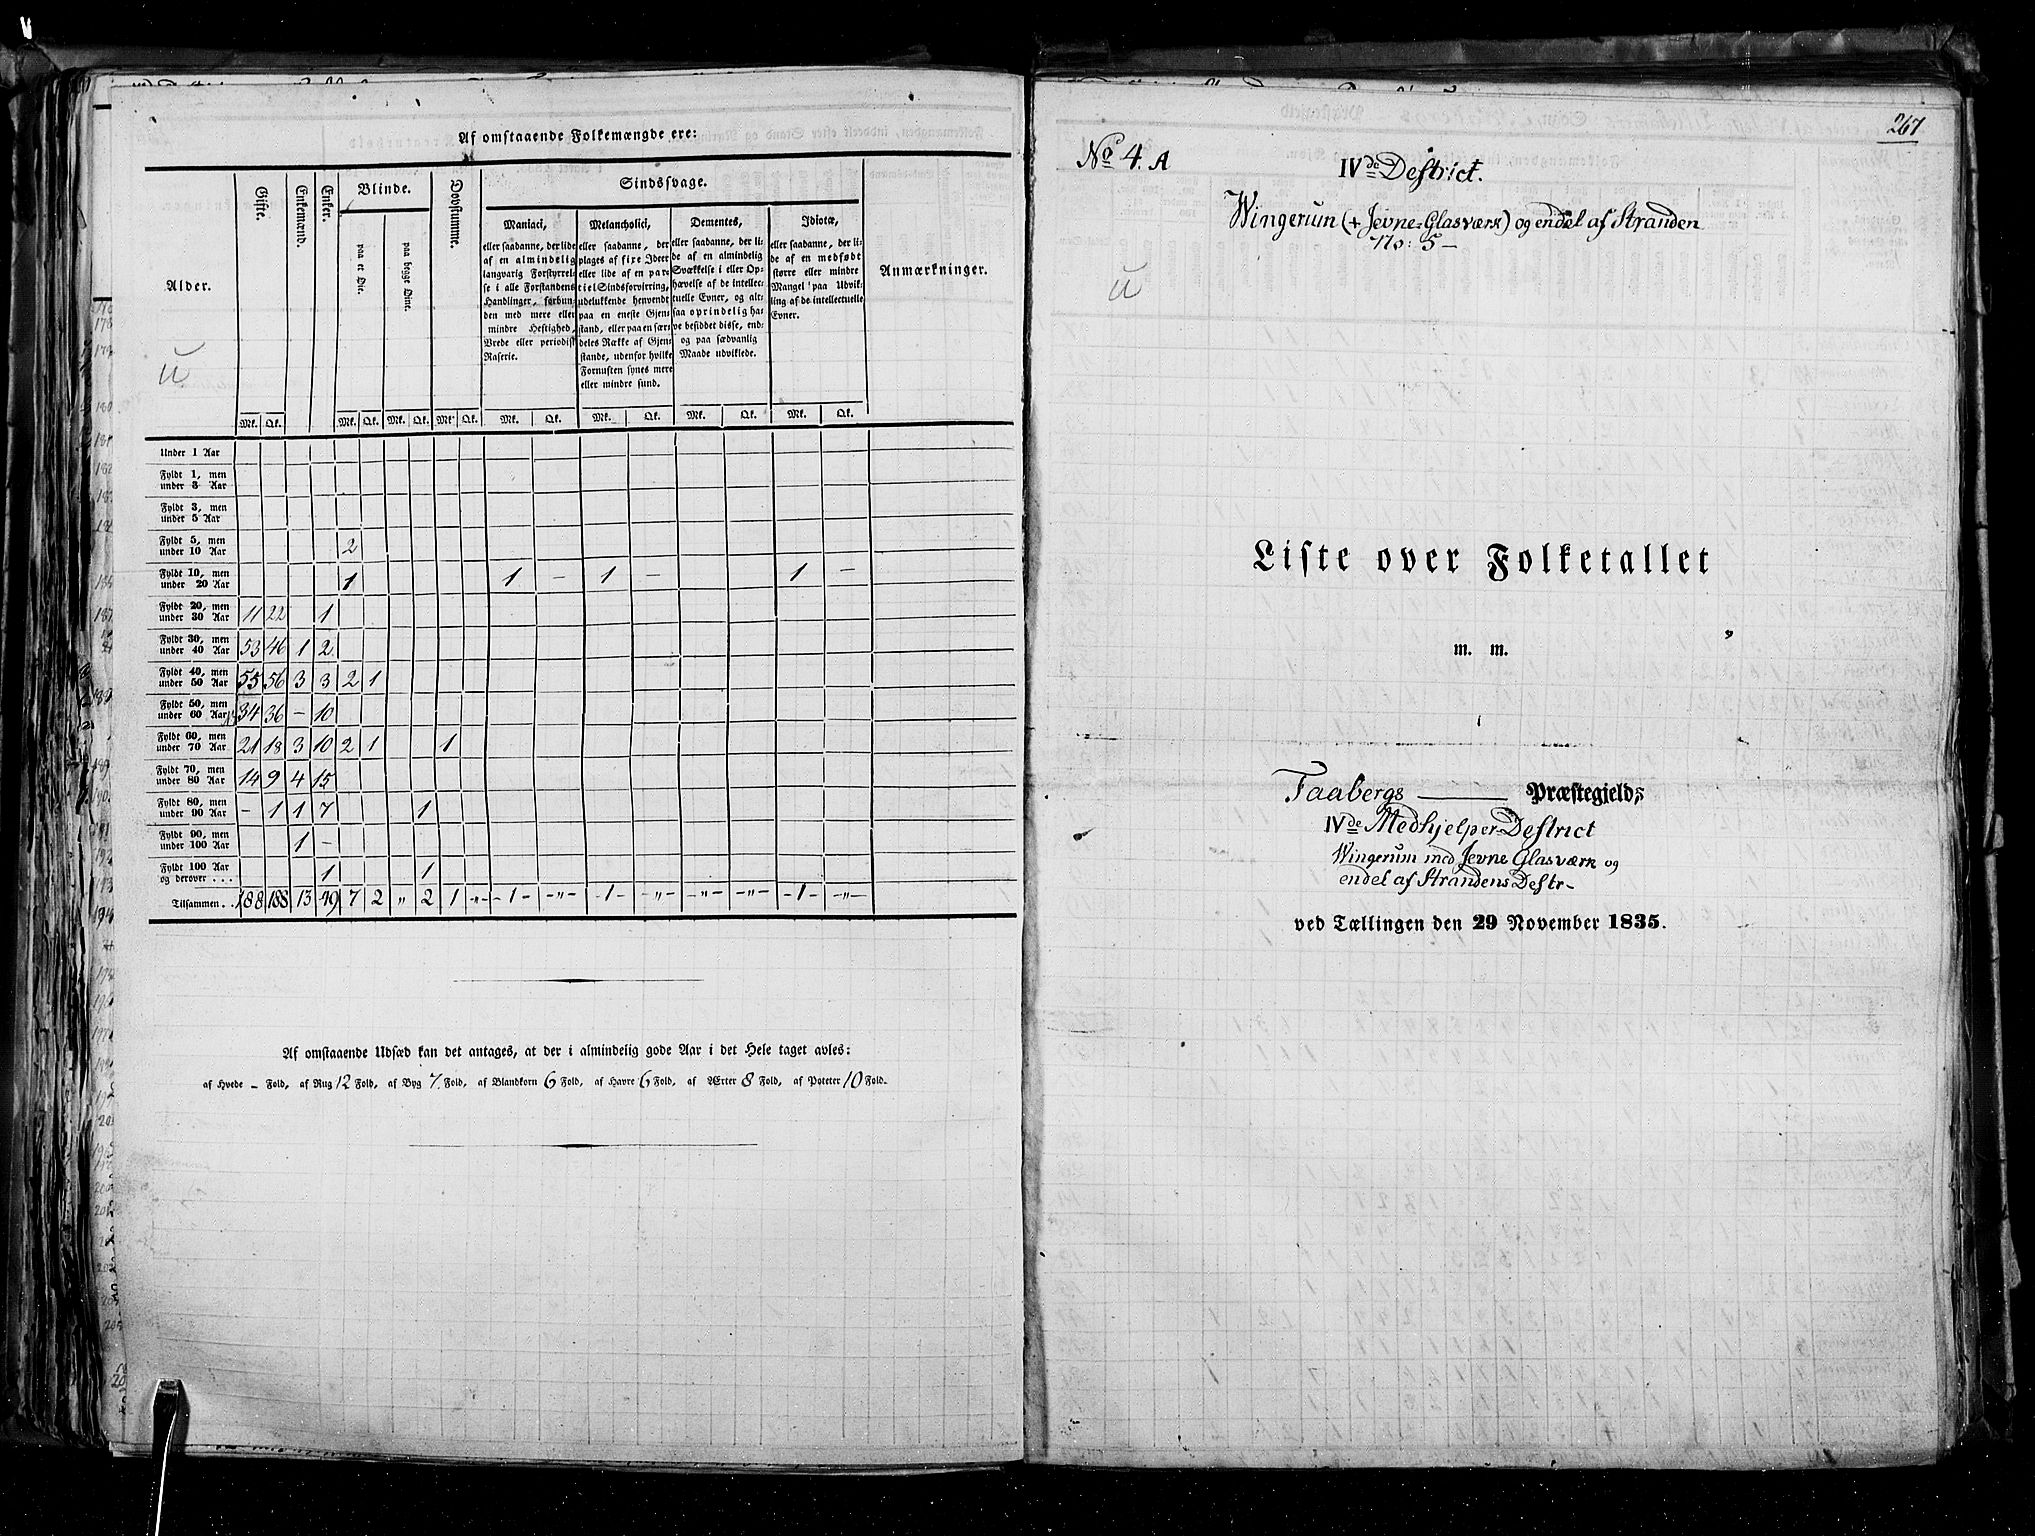 Af omstaaende Folkemængde ere:
Alder. | Gifte. | Enkemænd. | Enker. | Blinde. | Døvstumme. | Sindssvage. | Anmærkninger.
paa et Øie. | paa begge Øine.
Maniaci,
eller saadanne, der lide
af en almindelig
langvarig Forstyrrel-
se i alle Forstandens
Handlinger, forbun-
den med mere eller
mindre Heftighed,
Vrede eller periodisk
Raserie.
Melancholici,
eller saadanne, der
plages af fixe Ideer
eller lide af en par-
tiel Sindsforvirring,
udelukkende henvendt
paa en eneste Gjen-
stand, eller paa en sær-
deles Række af Gjen-
stande, udenfor hvilke
Fornuften synes mere
eller mindre sund.
Dementes,
eller saadanne, der li-
de af en almindelig
Svækkelse i eller Op-
hævelse af de intellec-
tuelle Evner, og alt-
saa oprindelig ha-
ve besiddet disse, end-
og paa sædvanlig
Maade udviklede.
Idiotæ,
eller saadanne, der li-
de af en medfødt
større eller mindre
Mangel paa Udvik-
ling af de intellectuelle
Evner.
u
Mk. Qk. | Mk. Qk. Mk. Qk. Mk. Qk. | Mk. Qk. | Mk. Qk. | Mk. Qk. | Mk. Qk.
Under 1 Aar
Fyldt 1, men
under 3 Aar
Fyldt 3, men
under 5 Aar
Fyldt 5, men
under 10 Aar 2
Fyldt 10, men
under 20 Aar 1 1 — 1 — 1 —
Fyldt 20, men
under 30 Aar 11 22 1
Fyldt 30, men
under 40 Aar 53 46 1 2
Fyldt 40, men
under 50 Aar 55 56 3 3 2 1
Fyldt 50, men
under 60 Aar 34 36 – 10
Fyldt 60, men
under 70 Aar 21 18 3 10 2 1 1
Fyldt 70, men
under 80 Aar 14 9 4 15
Fyldt 80, men
under 90 Aar – 1 1 7 1
Fyldt 90, men
under 100 Aar 1 –
Fyldt 100 Aar
og derover . . . 1 1
Tilsammen . . 188 188 13 49 7 2 " 2 1 -"- -1- -"- -1- -"- -"- -"- -1- -"-
Af omstaaende Udsæd kan det antages, at der i almindelig gode Aar i det Hele taget avles:
af Hvede – Fold, af Rug 12 Fold, af Byg 7. Fold, af Blandkorn 6 Fold, af Havre 6 Fold, af Ærter 8 Fold, af Poteter 10 Fold.
267
No 4. A
IVde Destrict.
Wingerum (+ Jevne-Glasværk) og endel af Stranden
No: 5 –
u
Liste over Folketallet
m. m.
Faabergs Præstegjelds
IVde Medhjelper-Destrict
Wingerum med Jevne Glasværk og
endel af Strandens Destr-
ved Tællingen den 29 November 1835.